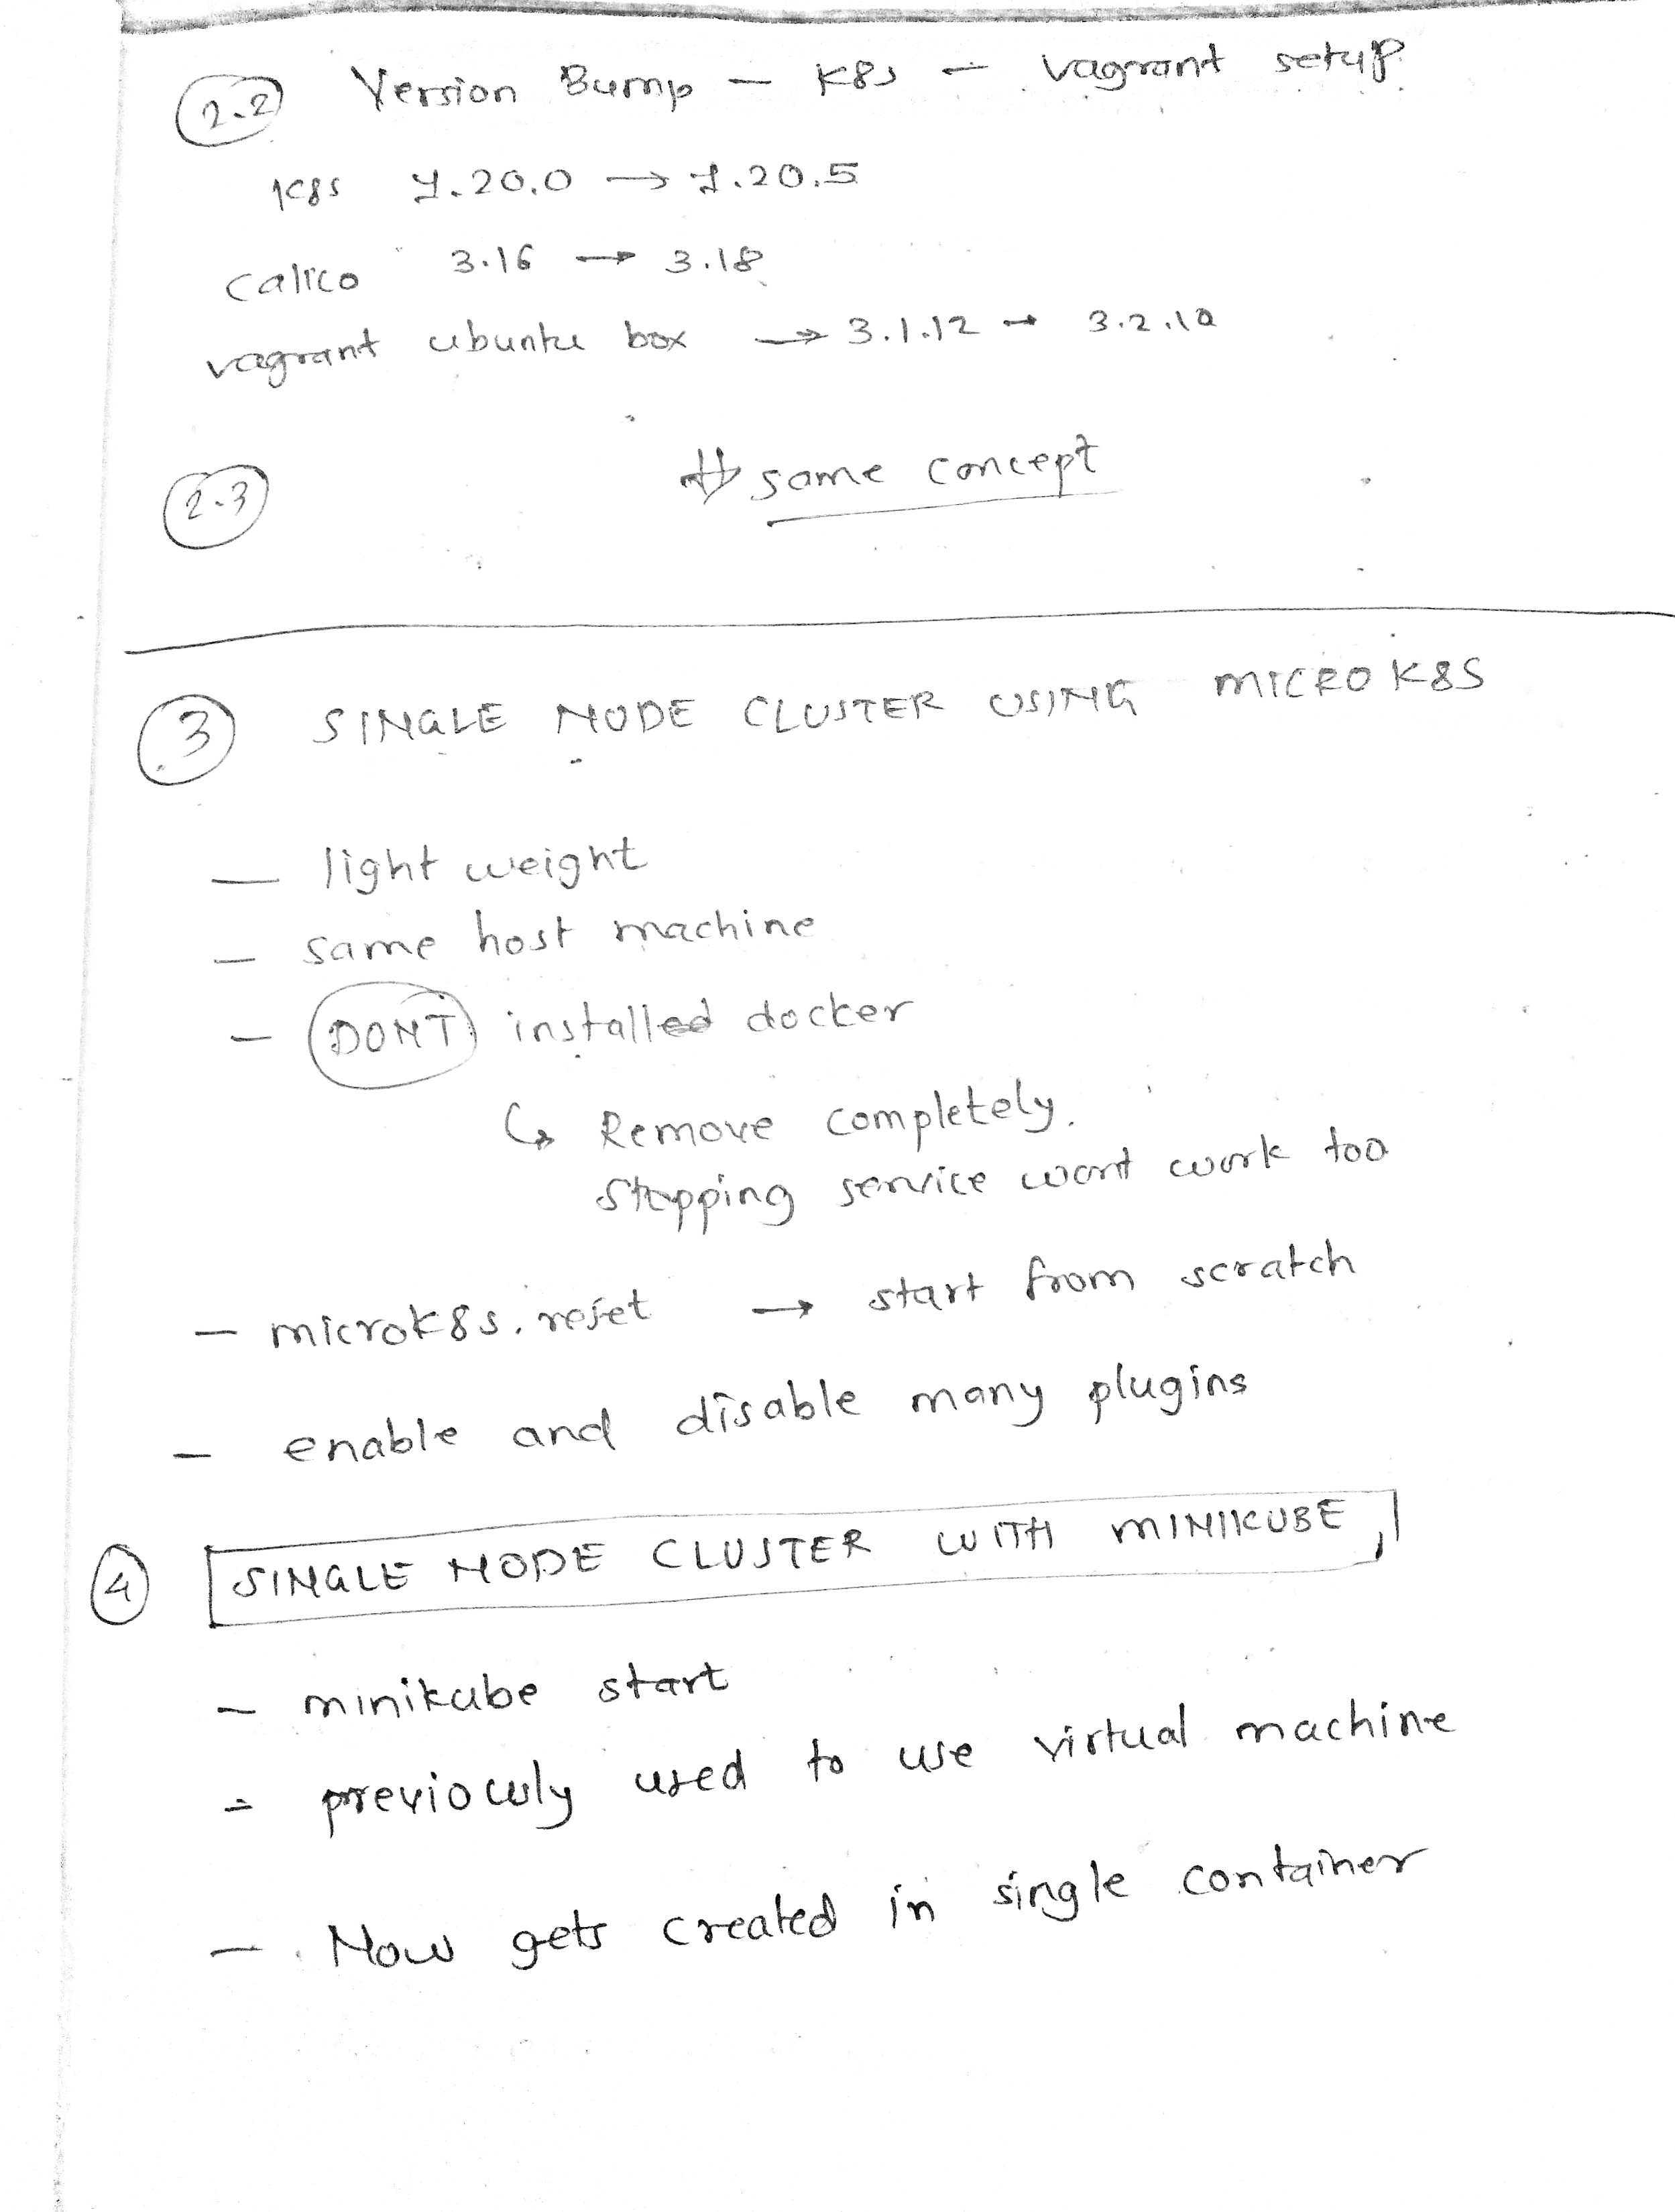 2.2 Version Bump - K8s - vagrant setup
K8s 1.20.0 → 1.20.5
calico 3.16 → 3.18
vagrant ubuntu box → 3.1.12 → 3.2.10
2.3 same concept
3 SINGLE NODE CLUSTER USING MICRO K8S
- light weight
- same host machine
- DONT installed docker
↳ Remove completely.
Stopping service wont work too
- microk8s.reset → start from scratch
- enable and disable many plugins
4 SINGLE NODE CLUSTER WITH MINIKUBE
- minikube start
- previously used to use virtual machine
- Now gets created in single container